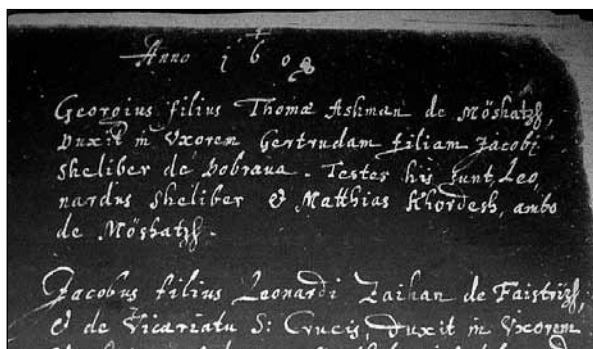 Anno 1608
Georgius filius Thomæ Ashman de Möshatzh,
duxit in Uxorem Gertrudam filiam Jacobi
Sheliber de Dobraua. Testes his sunt Leo,
nardus Sheliber & Matthias Khordesh, ambo
de Möshatzh.
Jacobus filius Leonardi Zaihan de Faistrizh,
& de Vicariatu S: Crucis, duxit in Uxorem